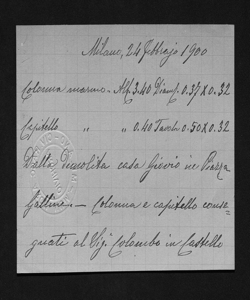 Milano, 24 Febbrajo 1900
Colonna marmo - Alt. 3.40 Diam. 0.37 X 0.32
Capitello " " 0.40 Tavol. 0.50 X 0.32
Dalla demolita casa Giovio in Piazza
Gallina. - Colonna e capitello conse-
gnati al Sig. Colombo in Castello